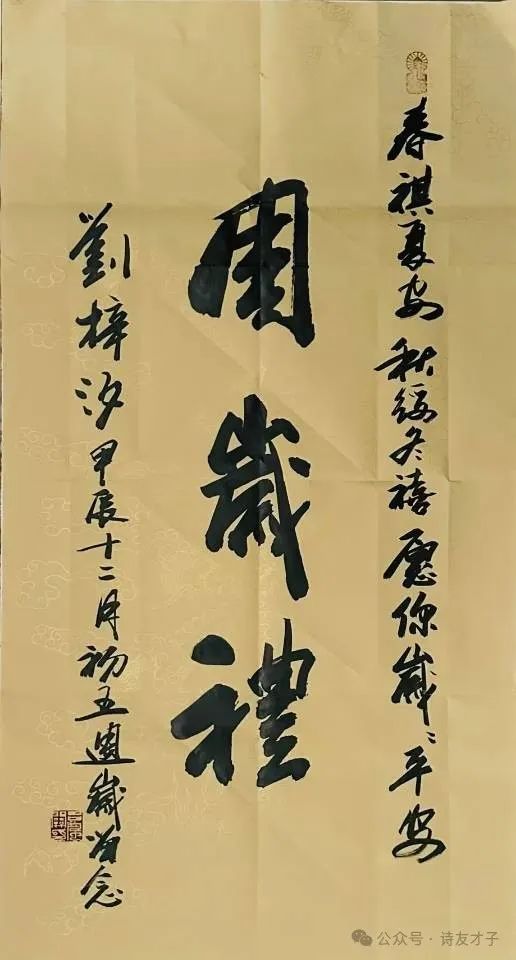 春祺夏安秋绥冬禧愿你歲〻平安
周歲禮
劉梓汐甲辰十二月初五週歲留念
公众号·诗友才子